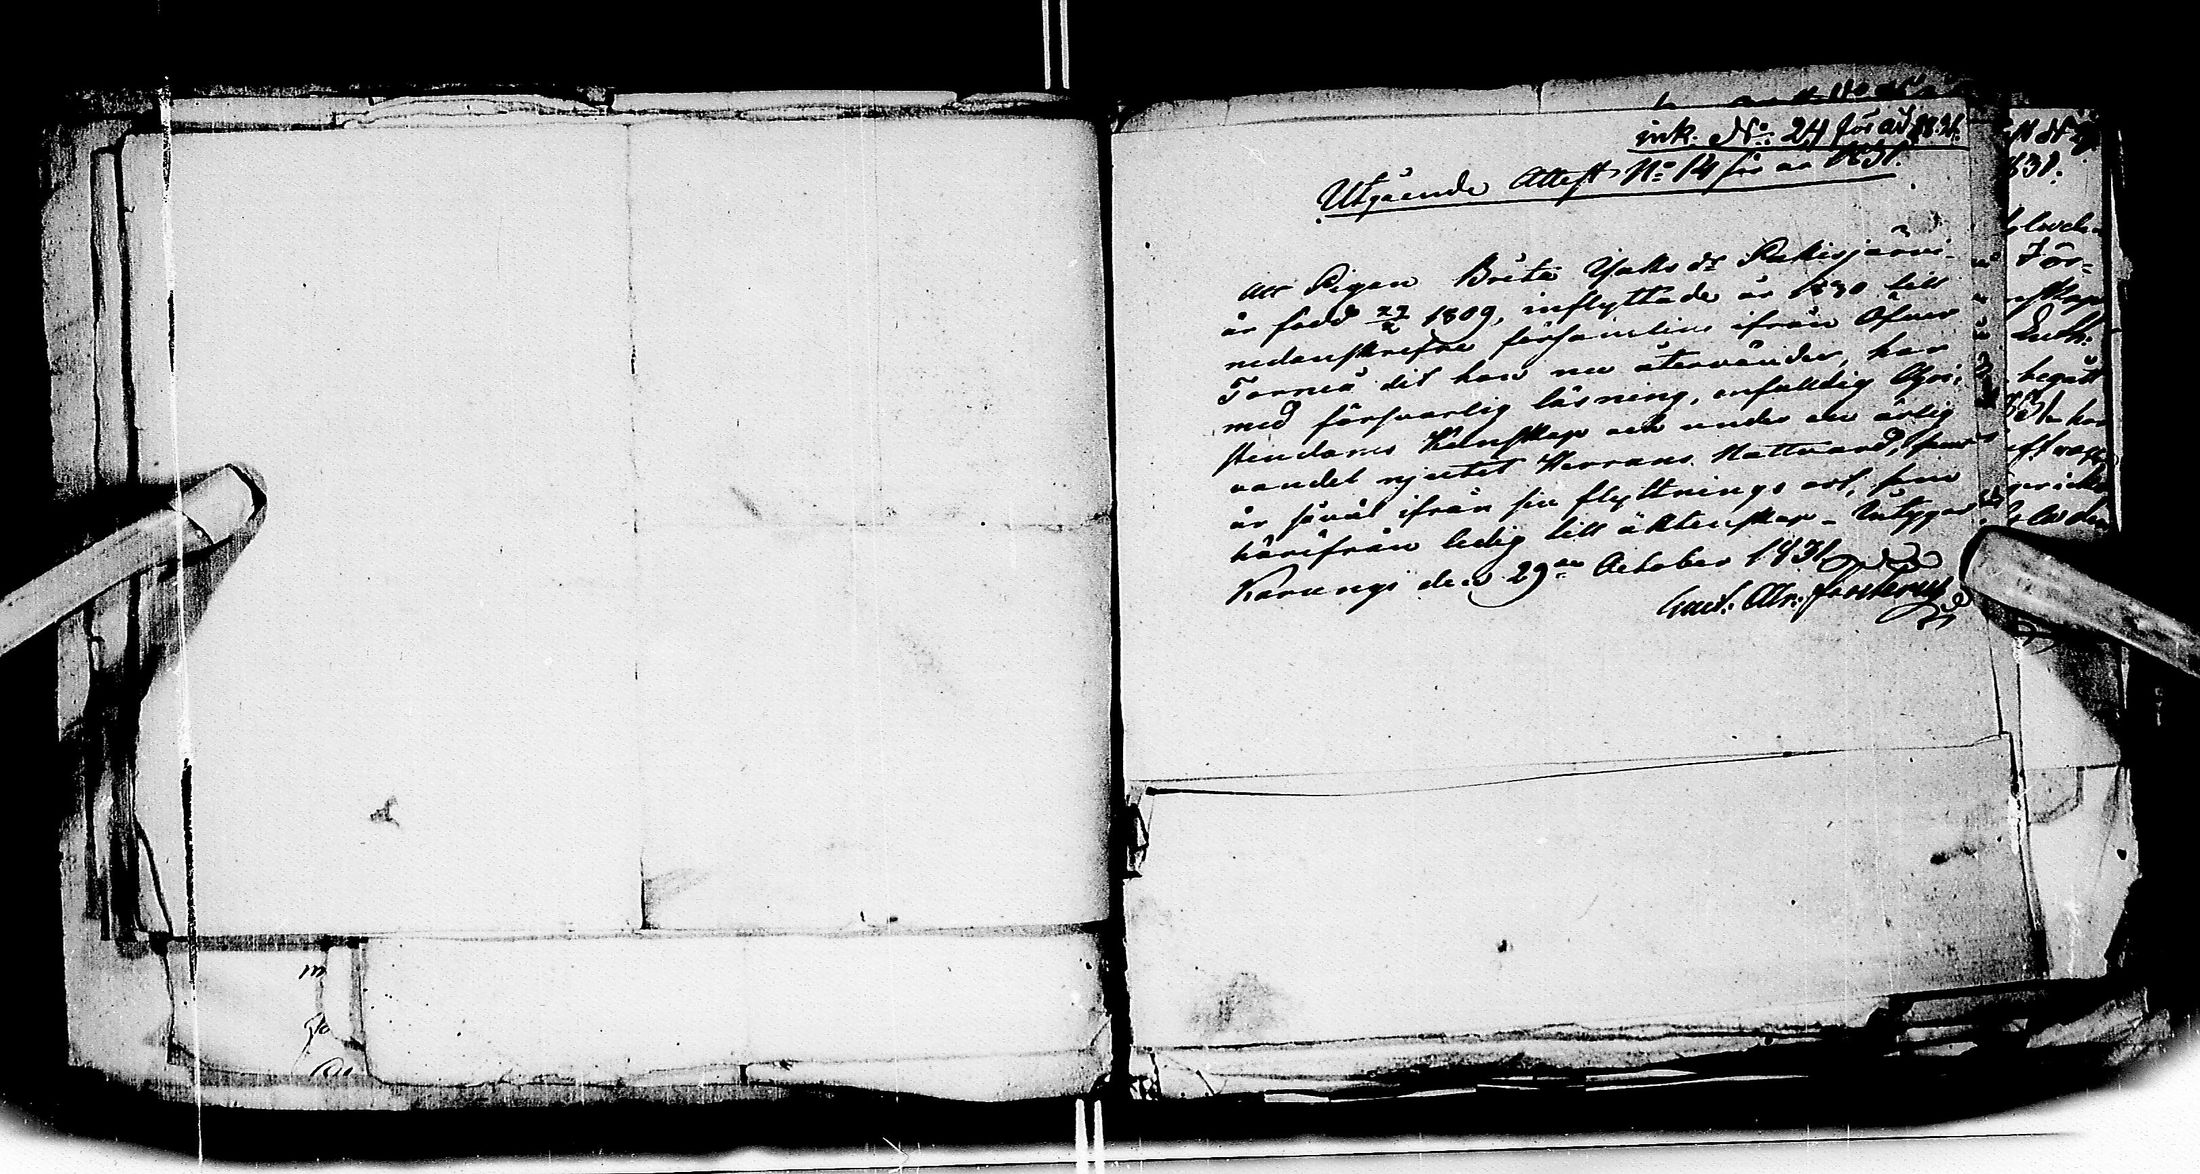 ink. No: 24 för år 1831.
Utgående Attest No 14 för år 1831.
Att Pigan Brita Isaks dr Pakisjärvi
är född 27/2 1809, inflyttade år 1830 till
nedanskrefne församling ifrån Öfver
Torneå dit hon nu återvänder, har
med försvarlig läsning, enfaldig Chri-
stendoms Kunskap och under en ärlig
vandel njutit Herrans Nattvard, samt
är såväl ifrån sin flyttnings ort, som
härifrån ledig till äktenskap - Intygar
Karungi den 29de October 1831